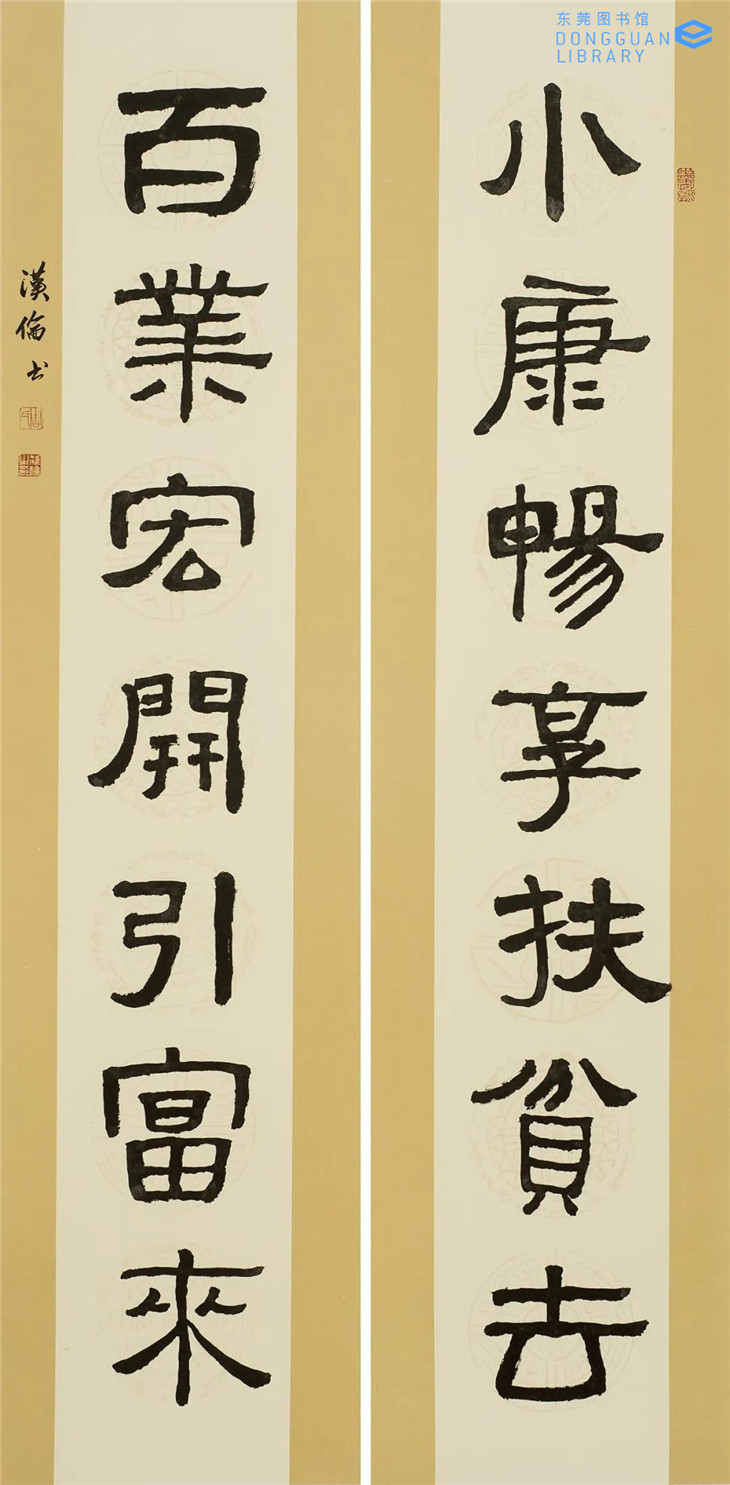 东莞图书馆
DONGGUAN
LIBRARY
小康暢享扶貧去
百業宏開引富來
漢倫书